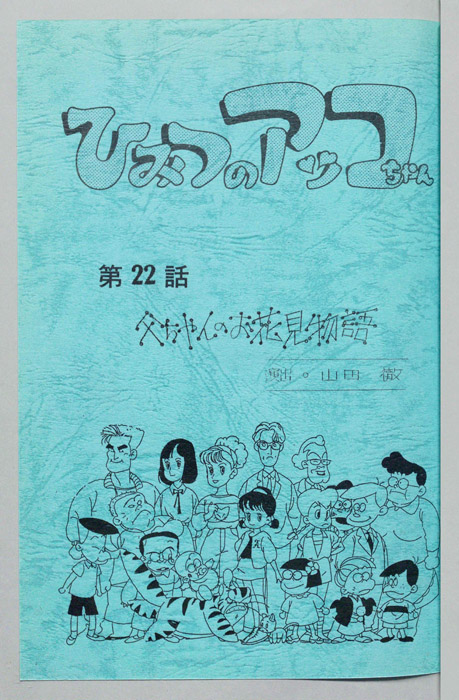 ひみつのアッコちゃん
第22話
父ちゃんのお花見物語
山田 徹